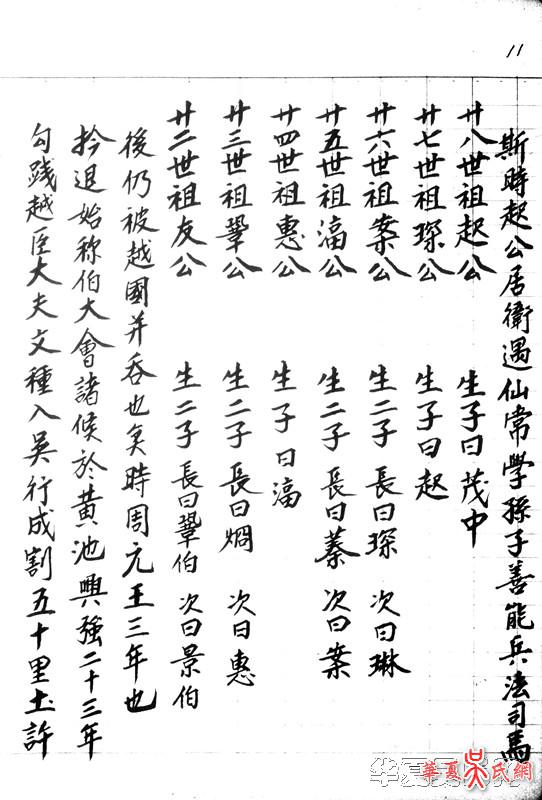 11
勾踐越臣大夫文種入吳行成割五十里土許
退始称伯大會諸侯於黃池興強二十三年
後仍被越國并吞也矣時周元王三年也
廿二世祖友公 生二子 長曰鞏伯 次曰景伯
廿三世祖鞏公 生二子 長曰 次曰惠
廿四世祖惠公 生子曰滆
廿五世祖滆公 生二子 長曰蓁 次曰案
廿六世祖案公 生二子 長曰琛 次曰琳
廿七世祖琛公 生子曰起
廿八世祖起公 生子曰茂中
斯時起公居衛遇仙常學孫子善能兵法司馬
華夏吳氏網